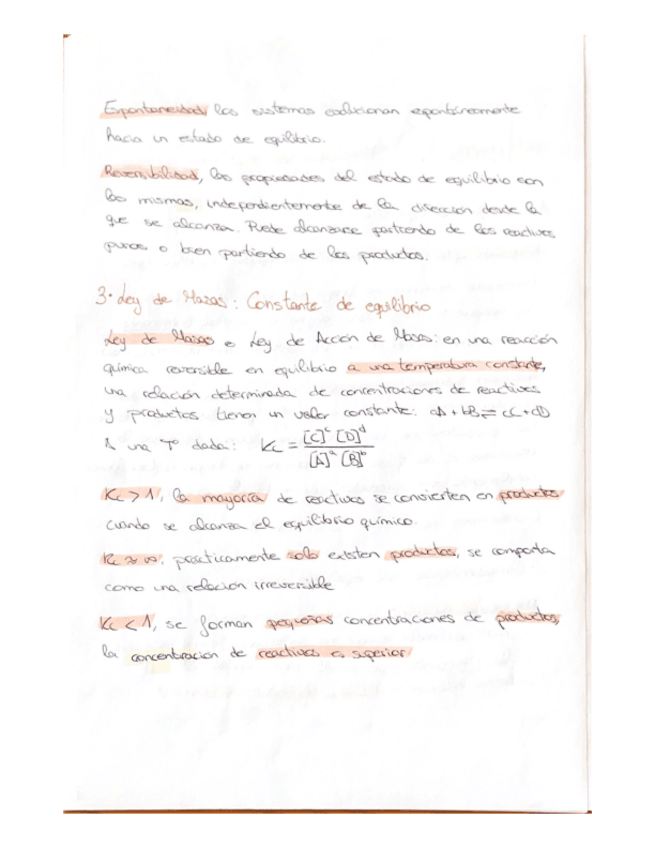 Espontaneidad, los sistemas evolucionan espontáneamente
hacia un estado de equilibrio.
Reversibilidad, las propiedades del estado de equilibrio son
las mismas, independientemente de la dirección desde la
que se alcanza. Puede alcanzarse partiendo de los reactivos
puros o bien partiendo de los productos.
3. Ley de Masas: Constante de equilibrio
Ley de Masas o Ley de Acción de Masas: en una reacción
química reversible en equilibrio a una temperatura constante,
una relación determinada de concentraciones de reactivos
y productos tienen un valor constante: aA + bB ⇌ cC + dD
A una Tº dada: Kc = [C]^c [D]^d / [A]^a [B]^b
Kc > 1, la mayoría de reactivos se convierten en productos
cuando se alcanza el equilibrio químico.
Kc ≈ ∞, prácticamente solo existen productos, se comporta
como una relación irreversible
Kc < 1, se forman pequeñas concentraciones de productos,
la concentración de reactivos es superior